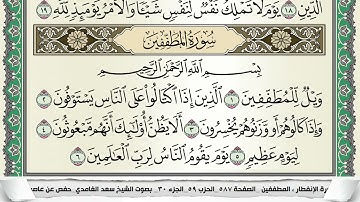 ٱلدِّينِ ١٨ يَوْمَ لَا تَمْلِكُ نَفْسٌ لِّنَفْسٍ شَيْـًٔا وَٱلْأَمْرُ يَوْمَئِذٍ لِّلَّهِ ١٩
سُورَةُ الْمُطَفِّفِينَ
بِسْمِ ٱللَّهِ ٱلرَّحْمَٰنِ ٱلرَّحِيمِ
وَيْلٌ لِّلْمُطَفِّفِينَ ١ ٱلَّذِينَ إِذَا ٱكْتَالُوا۟ عَلَى ٱلنَّاسِ يَسْتَوْفُونَ ٢
وَإِذَا كَالُوهُمْ أَو وَّزَنُوهُمْ يُخْسِرُونَ ٣ أَلَا يَظُنُّ أُو۟لَٰٓئِكَ أَنَّهُم مَّبْعُوثُونَ ٤
لِيَوْمٍ عَظِيمٍ ٥ يَوْمَ يَقُومُ ٱلنَّاسُ لِرَبِّ ٱلْعَٰلَمِينَ ٦
الإنفطار ، المطففين الصفحة ٥٨٧ الحزب ٥٩ الجزء ٣٠ بصوت الشيخ سعد الغامدي حفص عن عاصم